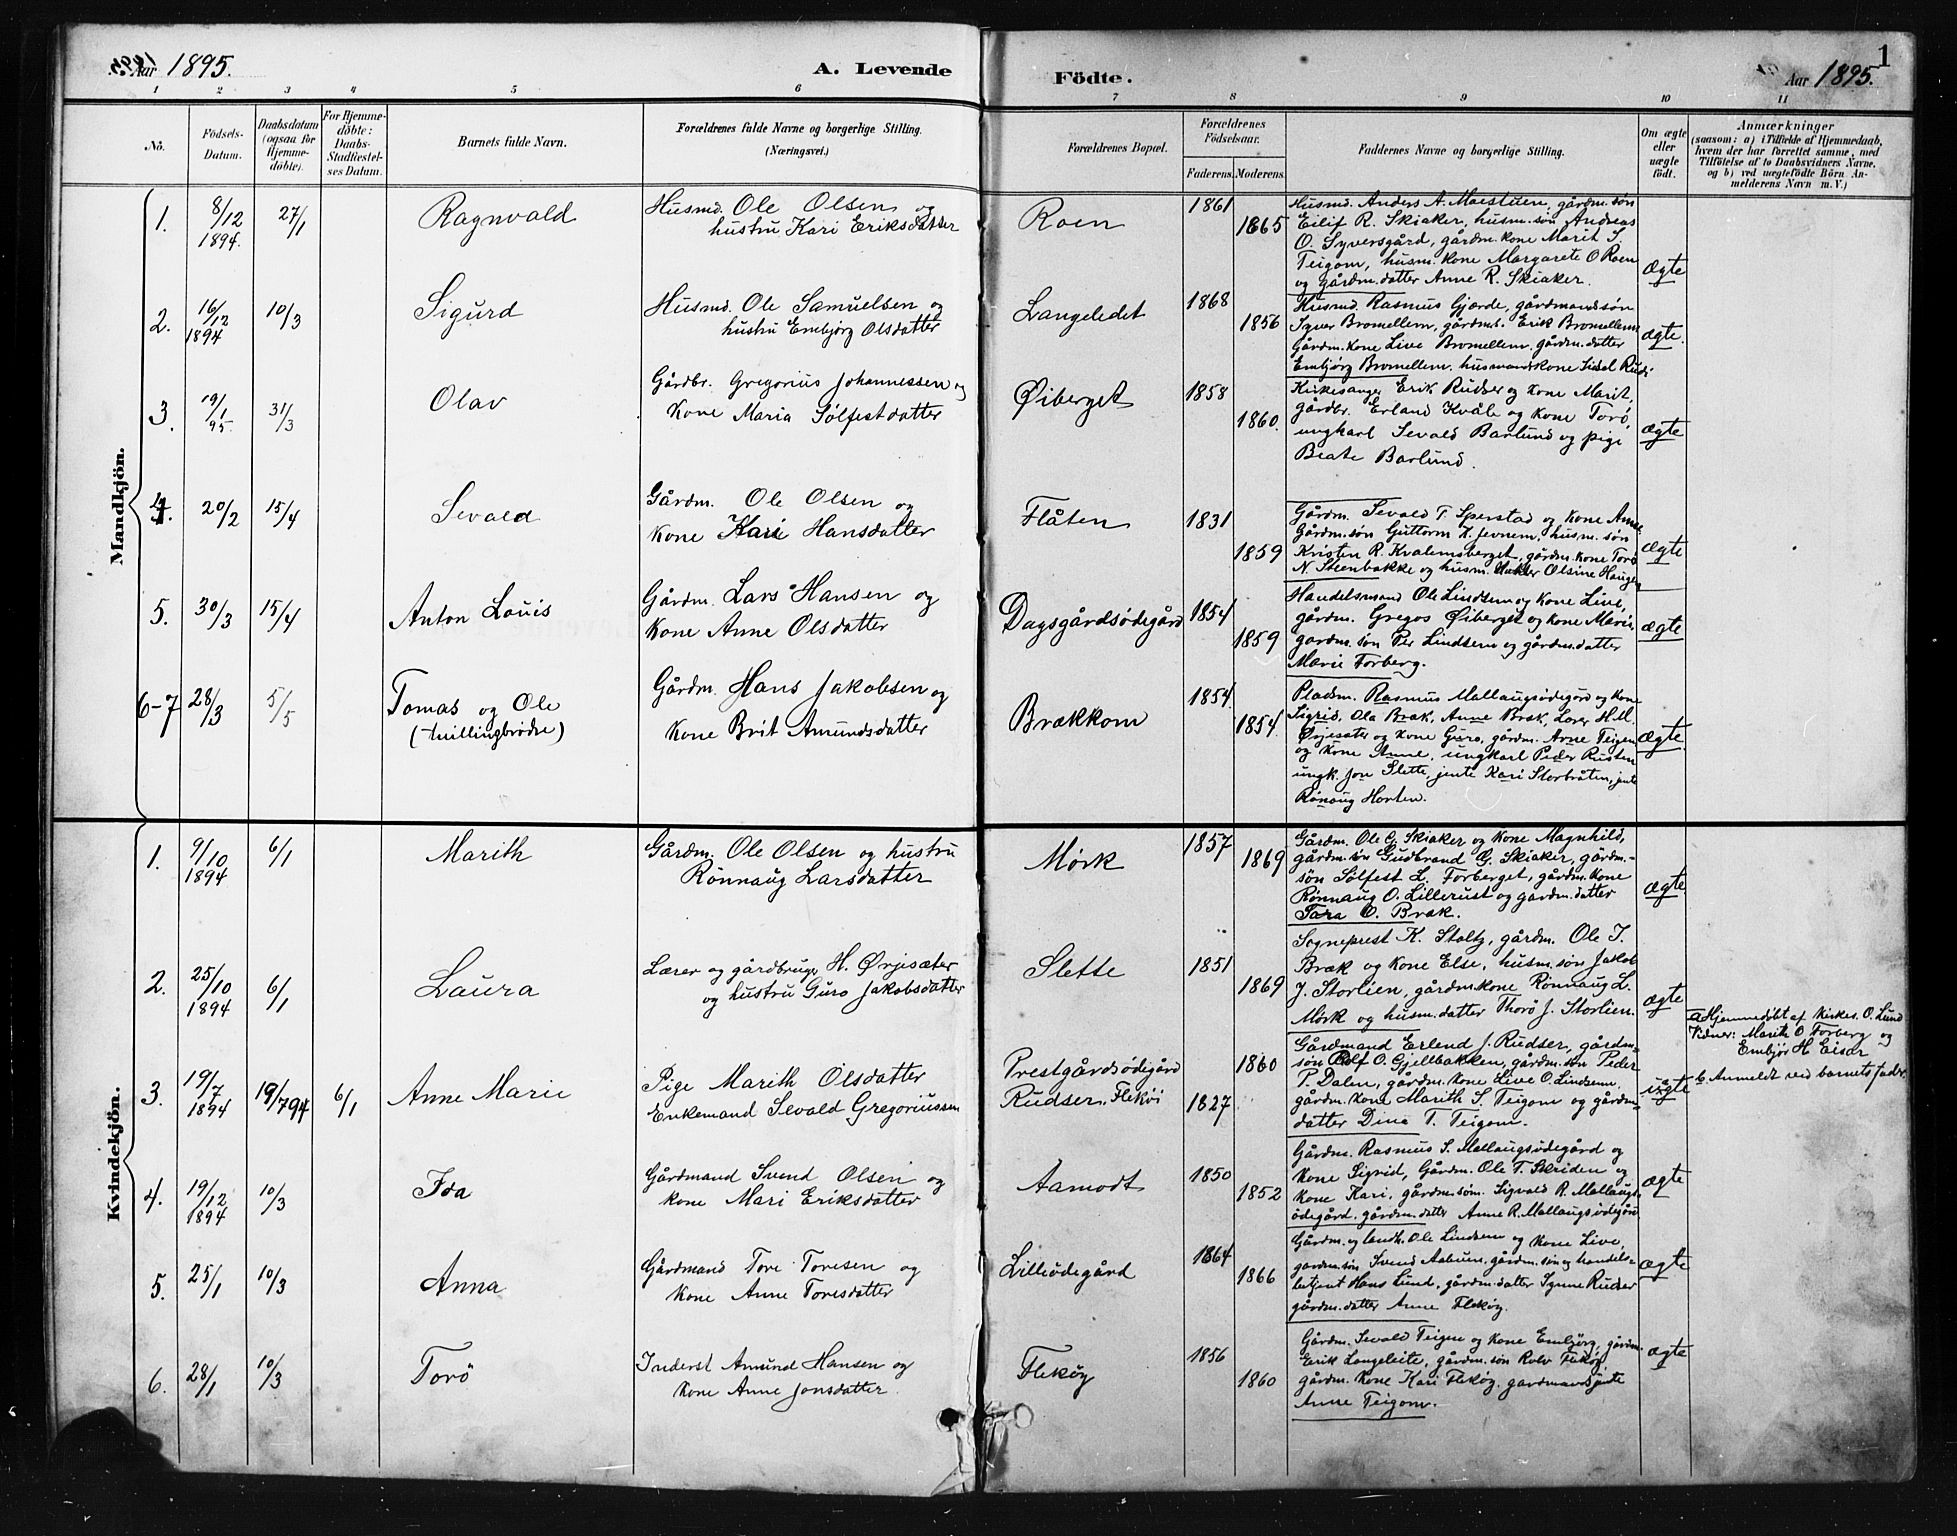 Aar 1895.
A. Levende
Födte.
Aar 1895.
1
1 2 3 4 5 6 7 8 9 10 11
No.
Födsels-
Datum.
Daabsdatum
(ogsaa for
Hjemme-
döbte).
For Hjemme-
döbte:
Daabs-
Stadfæstel-
ses Datum.
Barnets fulde Navn.
Forældrenes fulde Navne og borgerlige Stilling.
(Næringsvei.)
Forældrenes Bopæl.
Forældrenes
Födselsaar.
Faderens. Moderens.
Faddernes Navne og borgerlige Stilling.
Om ægte
eller
uægte
födt.
Anmærkninger
(saasom: a) i Tilfælde af Hjemmedaab,
hvem der har forrettet samme, med
Tilföielse af to Daabsvidners Navne,
og b) ved uægtefödte Börn An-
melderens Navn m. V.)
Mandkjön.
1. 8/12 1894. 27/1 Ragnvald
Husmd. Ole Olsen og
hustru Kari Eriksdatter
Roen 1861 1865
Husmd. Anders A. Moestuen, gårdm. søn
Eilif R. Skiaker, husm. søn Andreas
O. Syversgård, gårdm. kone Marit S.
Teigom, husm. kone Margarete O Roen
og gårdm. datter Anne R. Skiaker.
Ægte
2. 16/12 1894 10/3 Sigurd
Husmd. Ole Samuelsen og
hustru Embjørg Olsdatter
Langeledet 1868 1856
Husmd. Rasmus Gjærde, gårdmandssøn
Syver Bromellem, gårdms. Erik Bromellem,
Gårdm. kone Live Bromellem, gårdm. datter
Embjørg Bromellem, husmandskone Sidsel Rudi
ægte.
3. 19/1 95. 31/3 Olav
Gårdbr. Gregorius Johannessen og
kone Maria Sølfestdatter
Øiberget 1858 1860.
Kirkesanger Erik Rudser og kone Marit,
gårdbr. Erland Kvåle og kone Torø,
ungkarl Sevald Barlund og pige
Beate Barlund.
ægte
4. 20/2 15/4 Sevald
Gårdm. Ole Olsen og
kone Kari Hansdatter
Flåten 1831 1859
Gårdm. Sevald T. Sperstad og kone Anne
Gårdm. søn Guttorm H. Jevnem, husm. søn
Kristen R. Kvalemsberget, gårdm. kone Torø
N. Steenbakke og husm. datter Olsine Haugen
ægte
5. 30/3 15/4 Anton Louis
Gårdm. Lars Hansen og
kone Anne Olsdatter
Dagsgårdsødegård 1854 1859
Handelsmand Ole Lindsem og kone Live,
gårdm. Gregos Øiberget og kone Marie,
gardm. søn Per Lindsem og gårdm. datter
Marie Forberg.
ægte
6-7 28/3 5/5 Tomas og Ole
(tvillingbrødre)
Gårdm. Hans Jakobsen og
kone Brit Amundsdatter
Brækkom 1854. 1854.
Pladsm. Rasmus Mallaugsødegård og kone
Sigrid, Ola Bræk, Anne Bræk, Lærer H. M.
Ørjesæter og kone Guro, gårdm. Arne Teigen
og kone Anne, ungkarl Peder Rusten
ungk. Jon Slette, jente Kari Storbråten, jente
Rønaug Horten.
ægte.
Kvindekjön.
1. 9/10 1894 6/1 Marith
Gårdm. Ole Olsen og hustru
Rönnaug Larsdatter
Mørk 1857 1869
Gårdm. Ole G. Skiaker og kone Magnhild,
gårdm. søn Gudbrand G. Skiaker, gårdm.-
søn Sølfest L. Forberget, gårdm. kone
Rönnaug O. Lillerust og gardm. datter
Tora O. Bræk.
ægte
2. 25/10 1894 6/1 Laura
Lærer og gårdbruger H. Ørjesæter
og hustru Guro Jakobsdatter
Slette 1851 1869
Sogneprest K. Stoltz, gårdm. Ole I.
Bræk og kone Else, husm. søn Jakob
J. Storlien, gårdm. kone Rönnaug L.
Mørk og husm. datter Thorø J. Storlien.
ægte
3. 19/7 1894 19/7 94 6/1 Anne Marie
Pige Marith Olsdatter
Enkemand Sevald Gregoriussen
Prestgårdsødegård
Rudser, Flekøi
1860 1827
Gårdmand Erlend J. Rudser, gårdm-
søn Rolf O. Gjellbakken, gårdm. søn Peder
P. Dalen, gårdm. kone Live O. Lindsem,
gårdm. kone Marith S. Teigom og gårdm-
datter Dina T. Teigom.
uægte
a Hjemmedøbt af Kirkes. O. Lund
Vidner: Marith O Forberg og
Embjør H Eisar
b. Anmeldt ved barnets fader.
4. 19/12 1894 10/3 Ida
Gårdmand Svend Olsen og
kone Mari Eriksdatter
Aamodt 1850 1852
Gårdm. Rasmus S. Mallaugsødegård og
kone Sigrid, Gårdm. Ole T. Skriden og
kone Kari, gårdm. søn Sigvald R. Mallaugs-
ødegård, gårdm. datter Anne R. Mallaugsødegård
ægte
5. 25/1 10/3 Anna
Gårdmand Tore Toresen og
kone Anne Toresdatter
Lilleødegård 1864 1866
Gårdm. og landh. Ole Lindsem og kone Live,
gardm. søn Svend Aaburn, gårdm. søn og handels-
betjent Hans Lund, gårdm. datter Synne Rudser
gårdm. datter Anne Flekøy.
ægte
6. 28/1 10/3 Torø
Inderst Amund Hansen og
kone Anne Jonsdatter.
Flekøy 1856 1860
Gårdm. Sevald Teigen og kone Embjørg, gårdm.
Erik Langeleite, gårdm. søn Rolv Flekøy,
gårdm. kone Kari Flekøy, gardmandsjente
Anne Teigom.
ægte